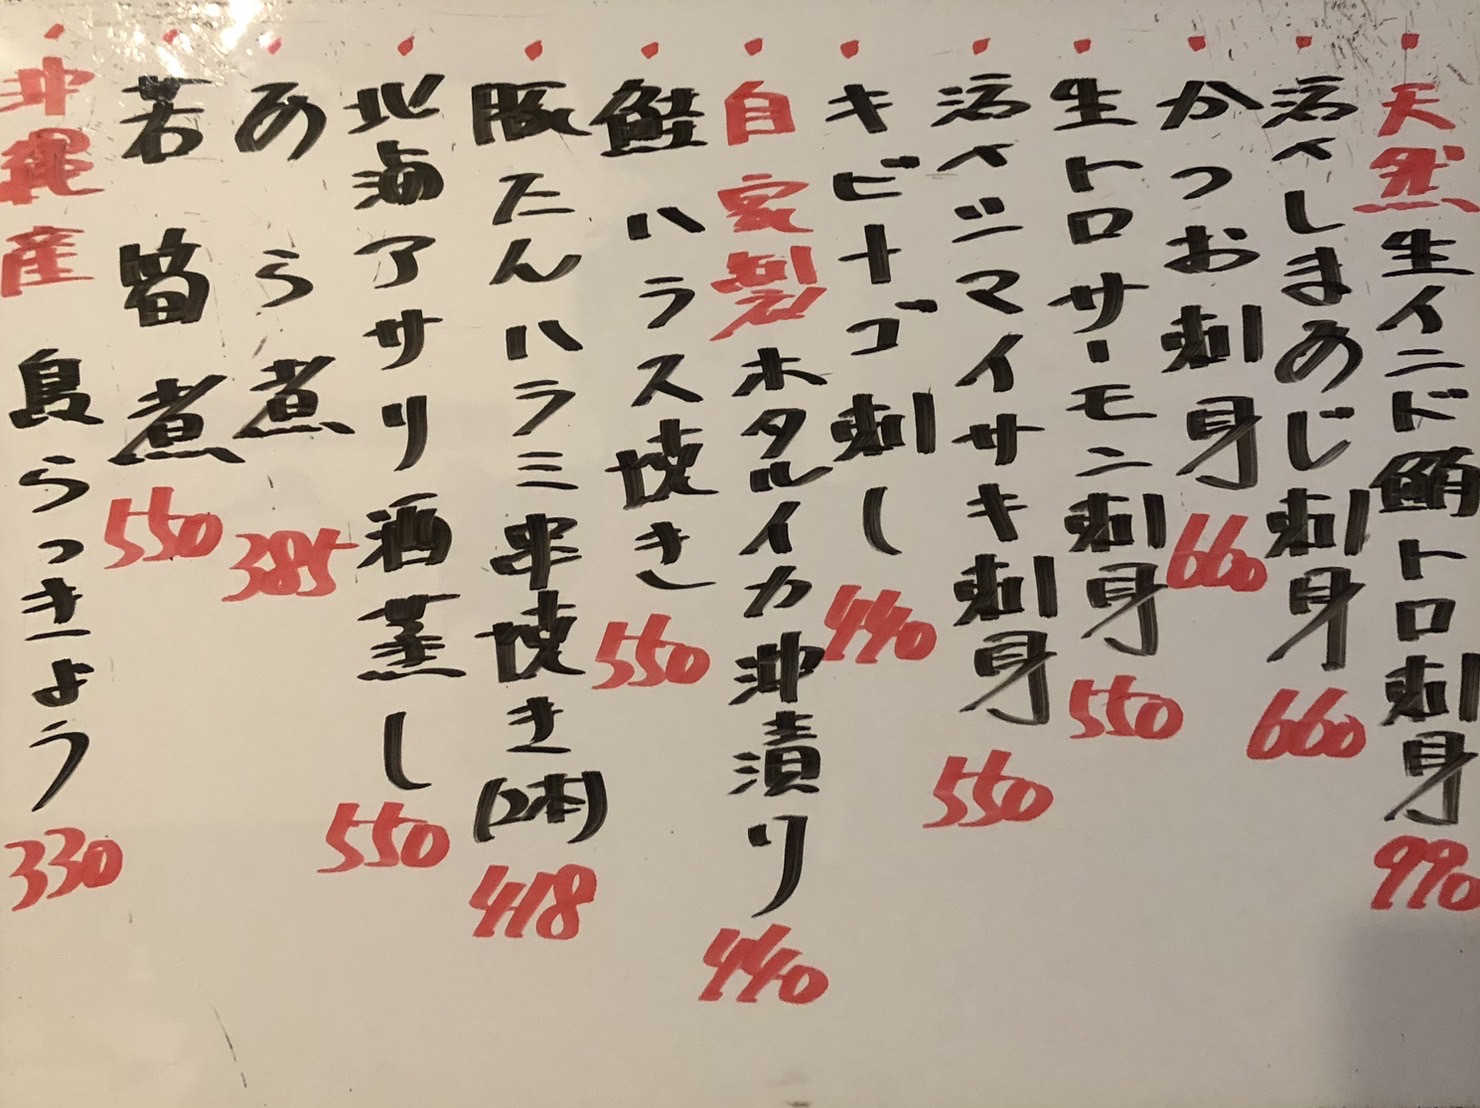 ・天然生インド鮪トロ刺身 990
・活〆しまあじ刺身 660
・かつお刺身 660
・生トロサーモン刺身 550
・活〆ジマイサキ刺身 550
・キビナゴ刺し 440
・自家製ホタルイカ沖漬り 440
・鮭ハラス焼き 550
・豚たんハラミ串焼き(2本) 418
・北海アサリ酒蒸し 550
・あら煮 385
・若筍煮 550
・沖縄産島らっきょう 330